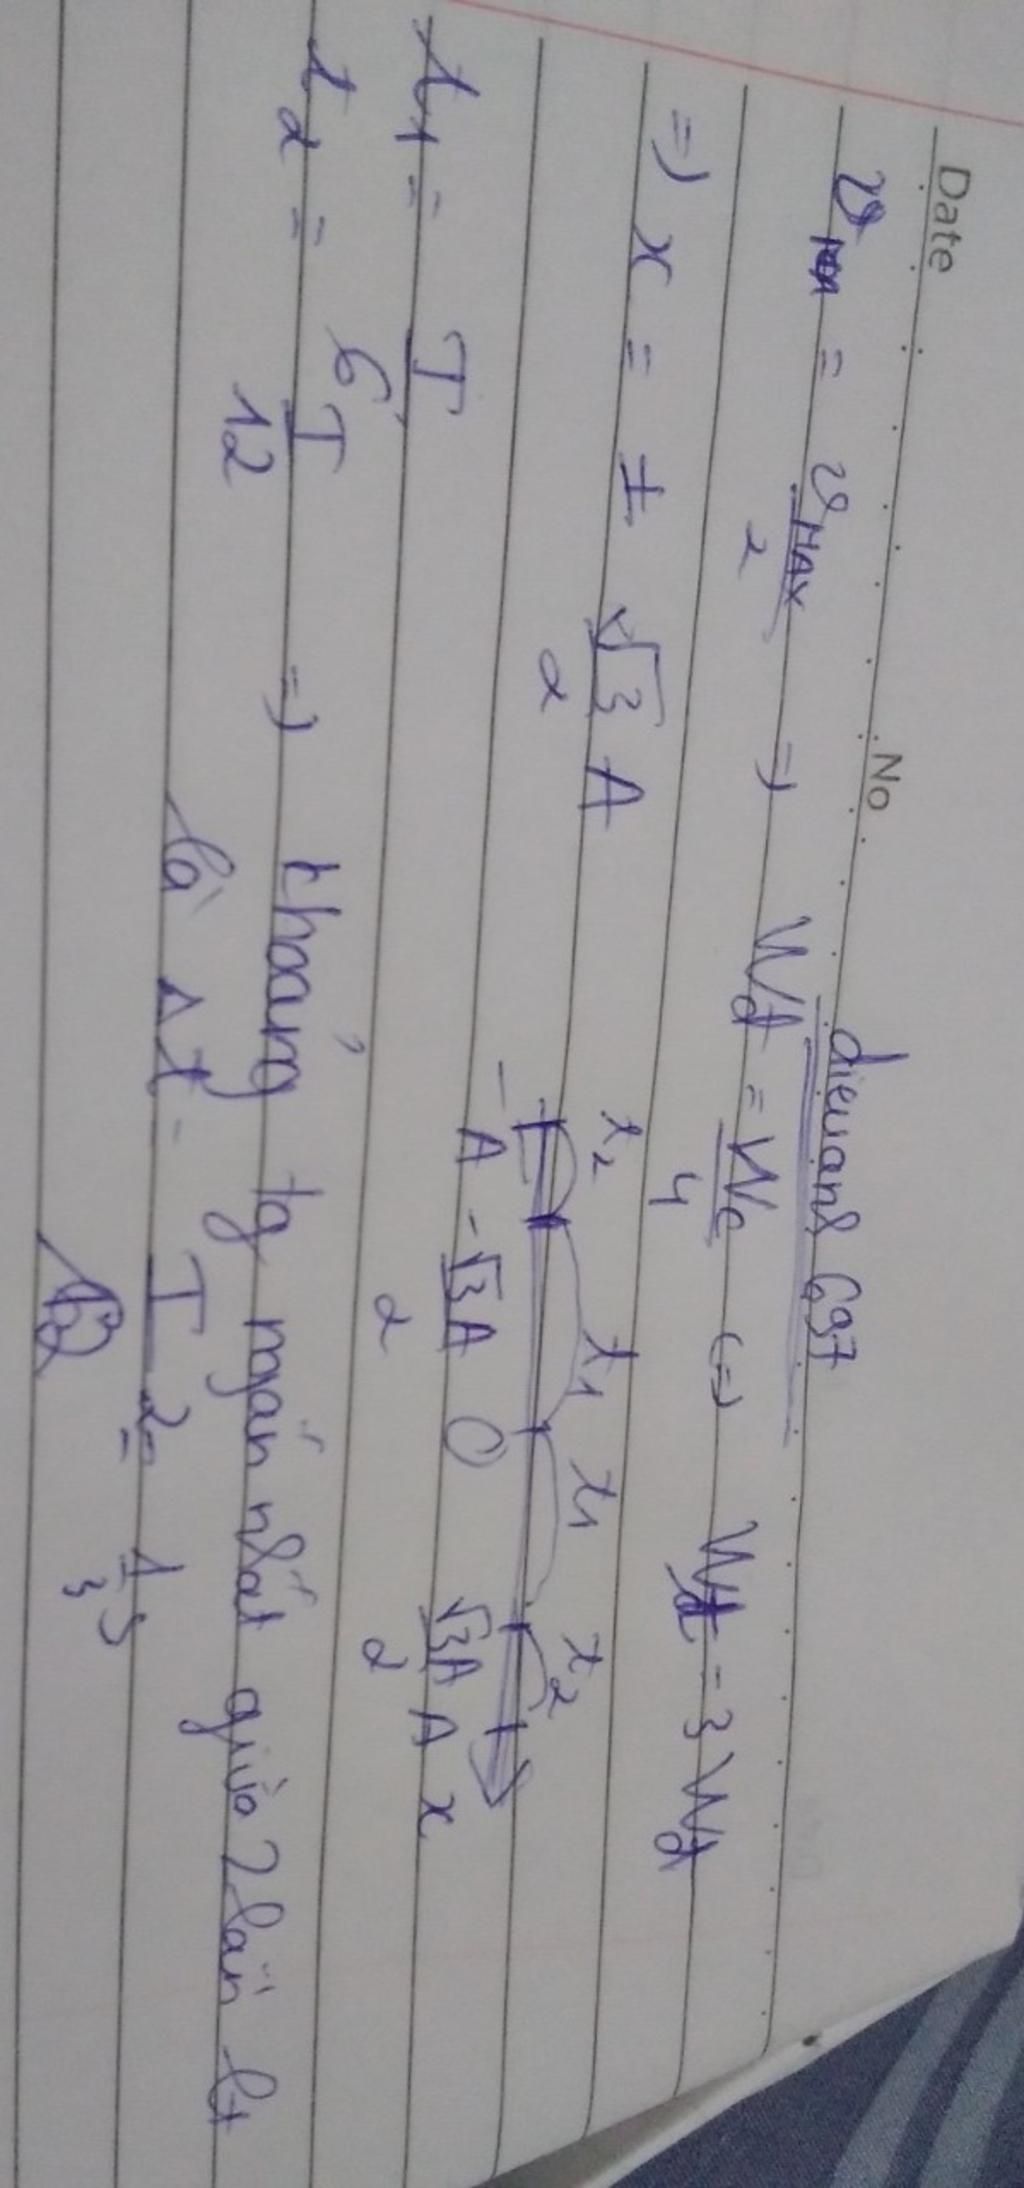 Date No
dieuanh 697
v = vMAX/2 => Wđ = Wc/4 <=> Wt = 3 Wđ
=> x = ± √3/2 A
t2 t1 t1 t2
-A -√3A/2 O √3A/2 A x
t1 = T/6
t2 = T/12 => khoảng tg ngắn nhất giữa 2 lần lt
là Δt = T/ 2 = 1/3 s